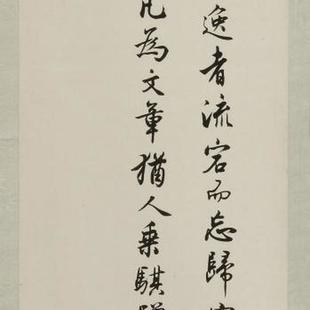 逸者流宕而忘歸
凡為文章猶人乘騏